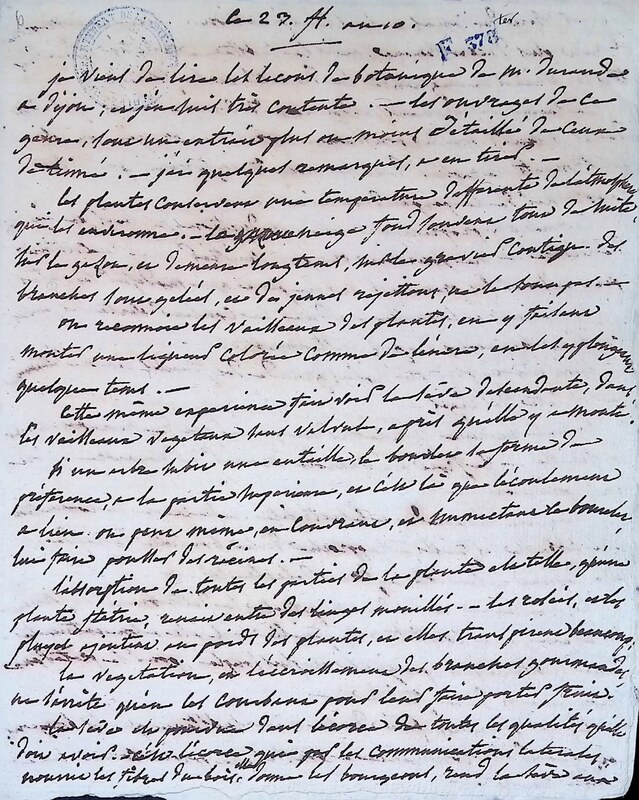 6
le 23. fl. an 10.
ter
F 378
je viens de lire les leçons de botanique de m. durande
a dijon, et j'en suis très contente. — les ouvrages de ce
genre, sont un extrait plus ou moins détaillé de ceux
de — j'ai quelques remarques, a en tirer. —
les plantes conservent une temperature differente de l'atmosphere
qui les environne. — la neige fond souvent tout de suite,
sur le gazon, et demeure longtems, sur le gravier contigu. des
branches sont gelées, et des jeunes rejettons, ne le sont pas. —
on reconnoit les vaisseaux des plantes, en y faisant
monter une liqueur colorée comme de l'encre, en les y plongeant
quelque tems. —
Cette même experience fait voir la sève descendante, dans
les vaisseaux vegetaux sans valvule, après qu'elle y a monté.
Si un arbre subit une entaille, le bourlet se forme de
préférence, a la partie superieure, et c'est là que l'écoulement
a lieu. on peut même, en couvrant, et humectant le bourlet,
lui faire pousser des racines. —
l'absorption de toutes les parties de la plante est telle, qu'une
plante fletrie, renait entre des linges mouillés. — les rosées, et les
pluyes ajoutent au poids des plantes, et elles transpirent beaucoup.
la vegetation, et l'accroissement des branches gourmandes,
ne s'arrête qu'en les courbant pour leur faire porter fruit.
la sève est pourvue dans l'écorce de toutes les qualités qu'elle
doit avoir. — c'est l'écorce que par les communications laterales,
nourrit les fibres du bois, elle donne les bourgeons, rend la sève aux